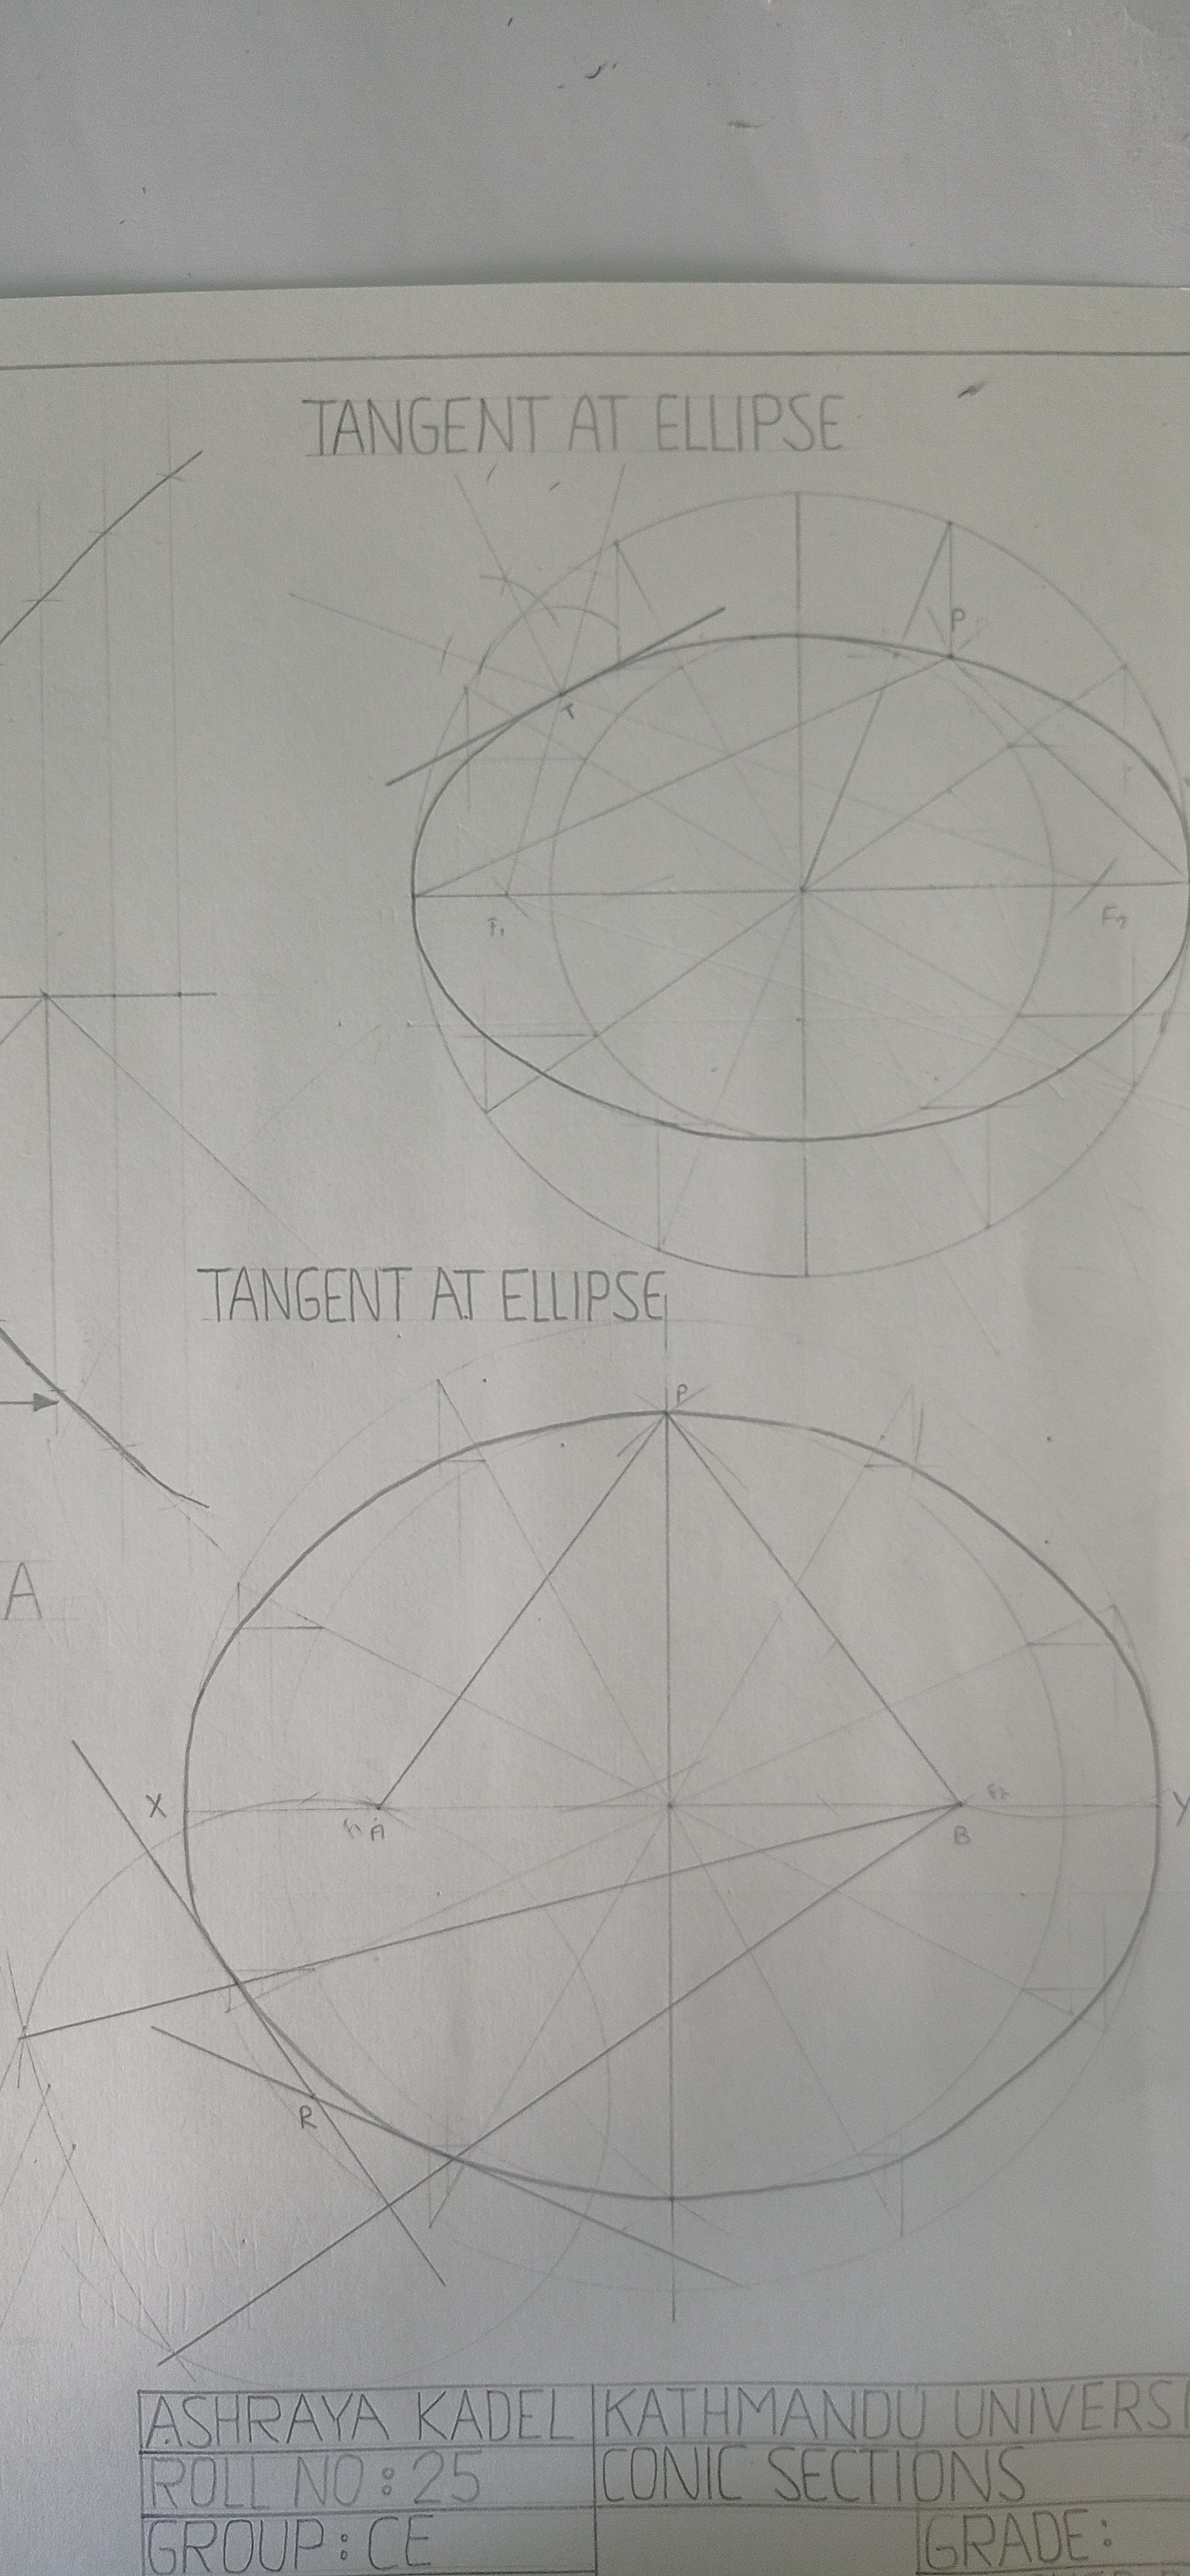 TANGENT AT ELLIPSE
P
T
F₁
F₂
TANGENT AT ELLIPSE
P
A
X
A
B
F₂
Y
R
ASHRAYA KADEL
KATHMANDU
ROLL NO: 25
CONIC SECTIONS
GROUP: CE
GRADE: